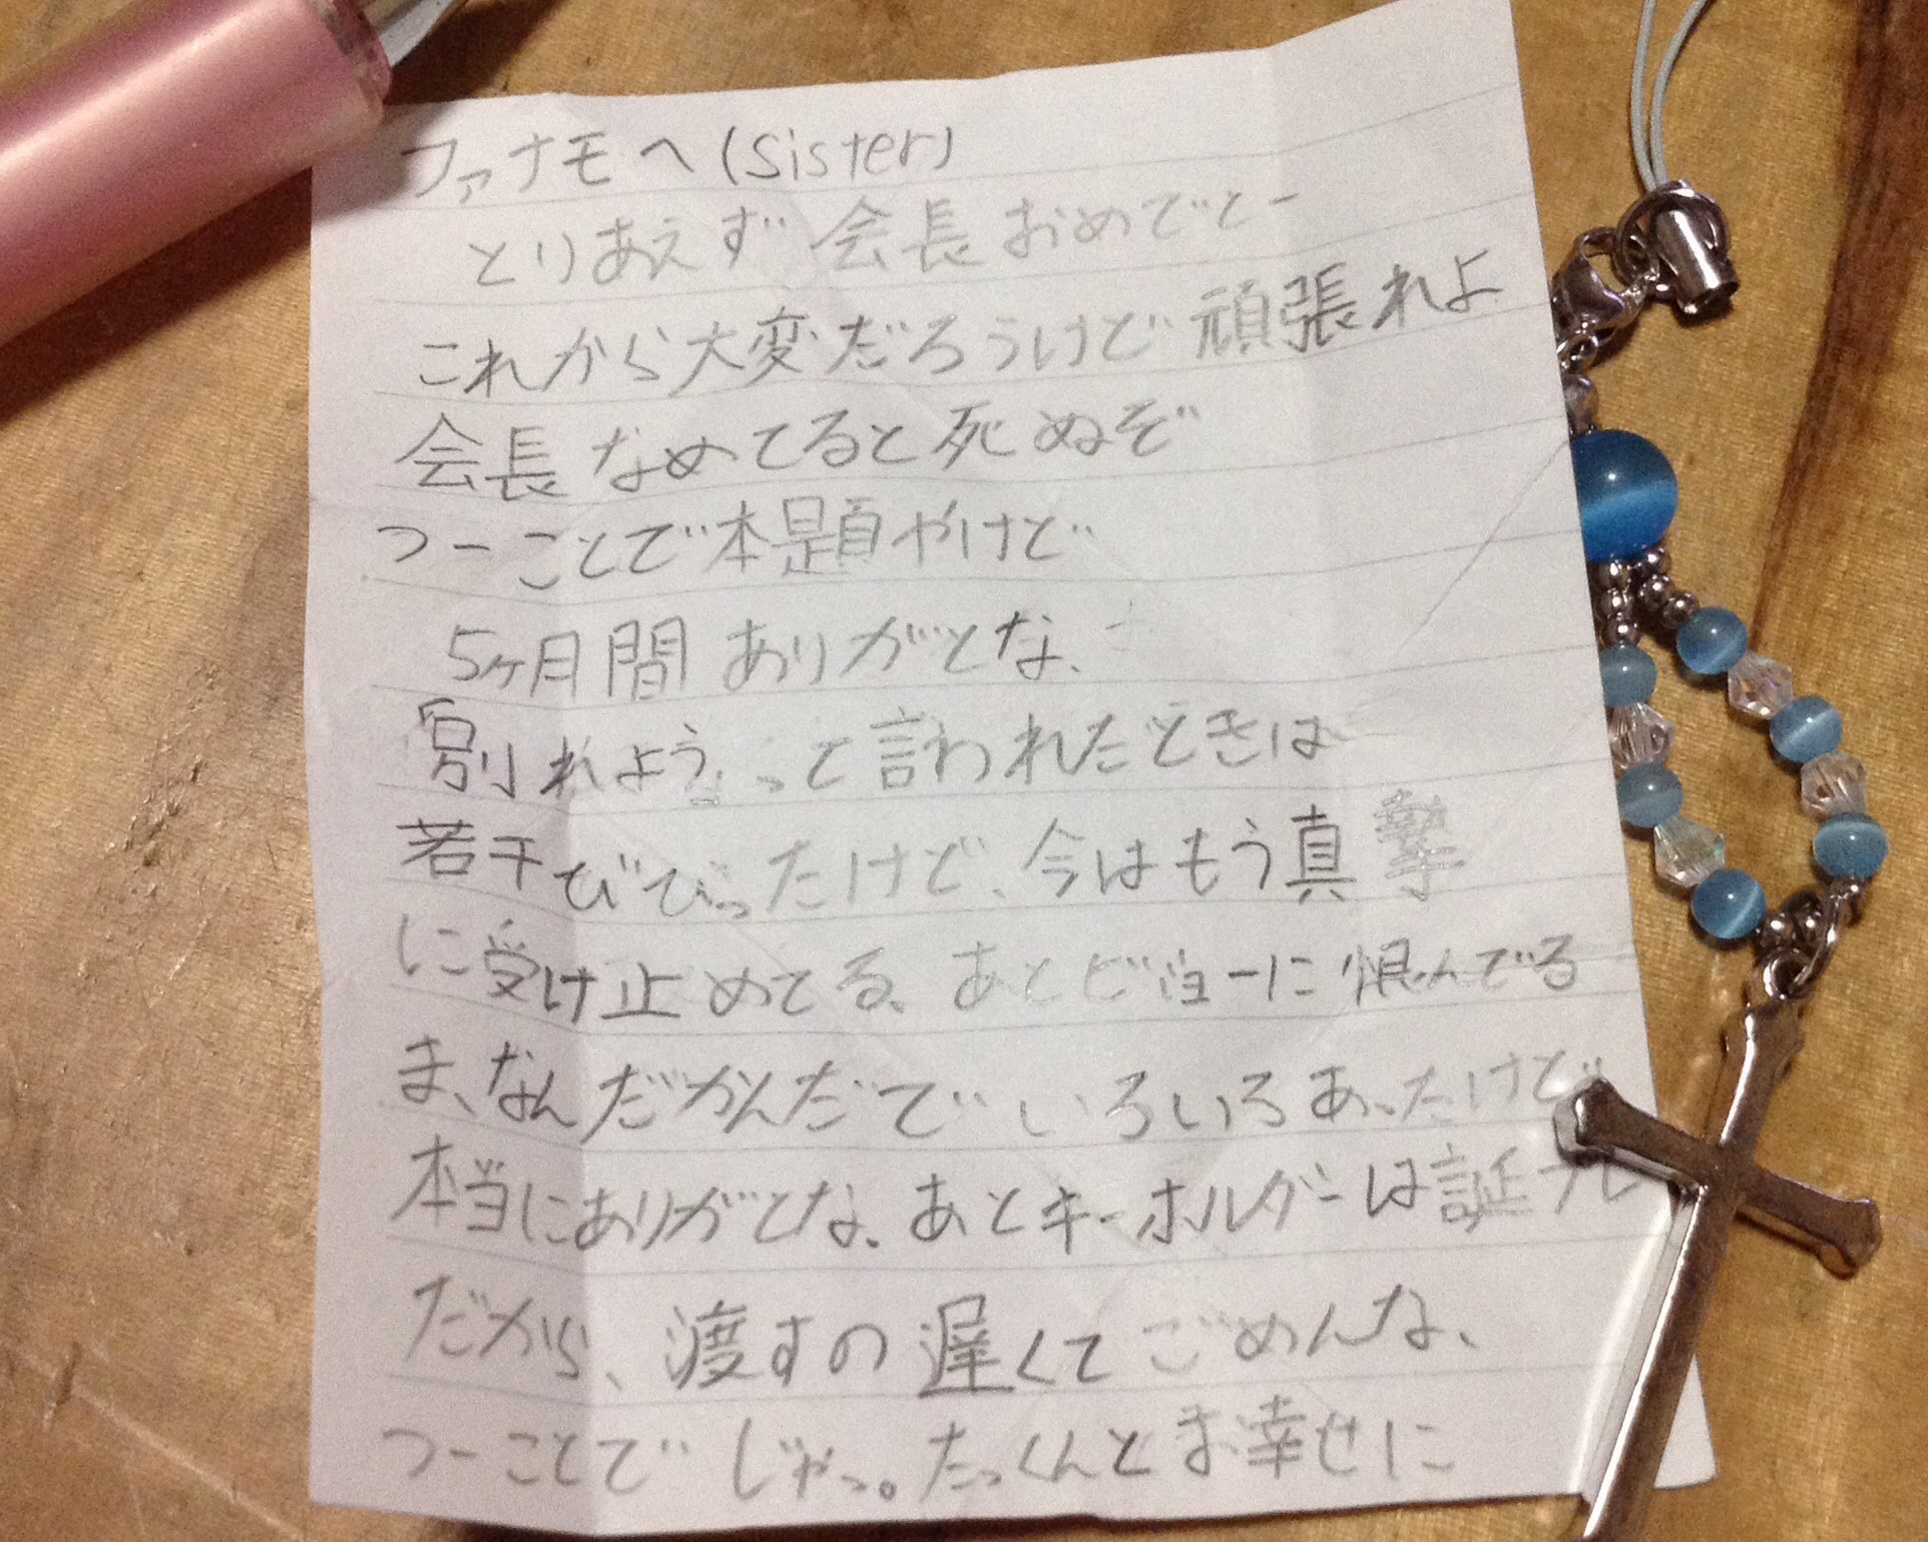 ファナモへ(Sister)
とりあえず会長おめでとー
これから大変だろうけど頑張れよ
会長なめてると死ぬぞ
つーことで本題やけど
5ヶ月間ありがとな、
別れようって言われたときは
若干びびったけど、今はもう真摯
に受け止めてる、あとビョーに恨んでる
ま、なんだかんだでいろいろあったけど
本当にありがとな、あとキーホルダーは誕プレ
だから、渡すの遅くてごめんな、
つーことでじゃっ。たっくんとお幸せに